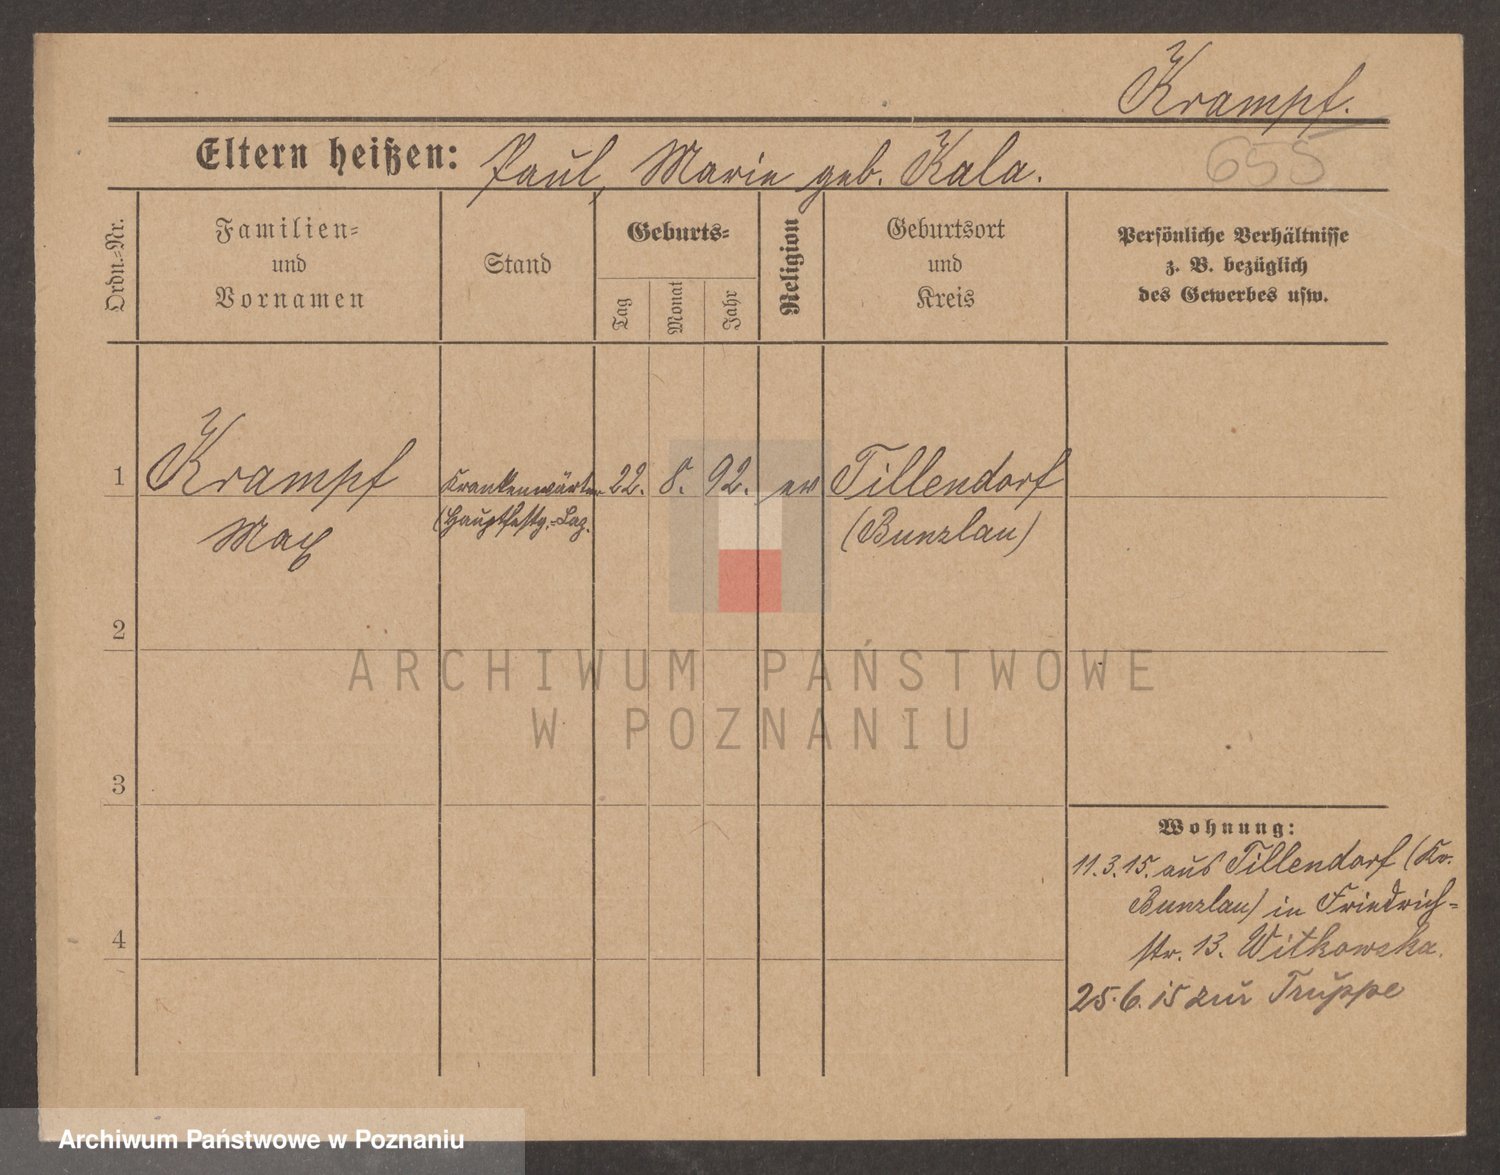 Krampf.
655
Eltern heißen: Paul, Marie geb. Kala.
Ordn.-Nr.
Familien-
und
Vornamen
Stand
Geburts-
Tag
Monat
Jahr
Religion
Geburtsort
und
Kreis
Persönliche Verhältnisse
z. B. bezüglich
des Gewerbes usw.
1 Krampf Krankenwärter 22. 8. 92. ev Tillendorf
Max (Hauptfestg.-Laz. (Bunzlau)
2
ARCHIWUM PAŃSTWOWE
W POZNANIU
3
Wohnung:
11.3.15. aus Tillendorf (Kr.
Bunzlau) in Friedrich-
str. 13. Witkowska.
4
25.6.15 zur Truppe
Archiwum Państwowe w Poznaniu